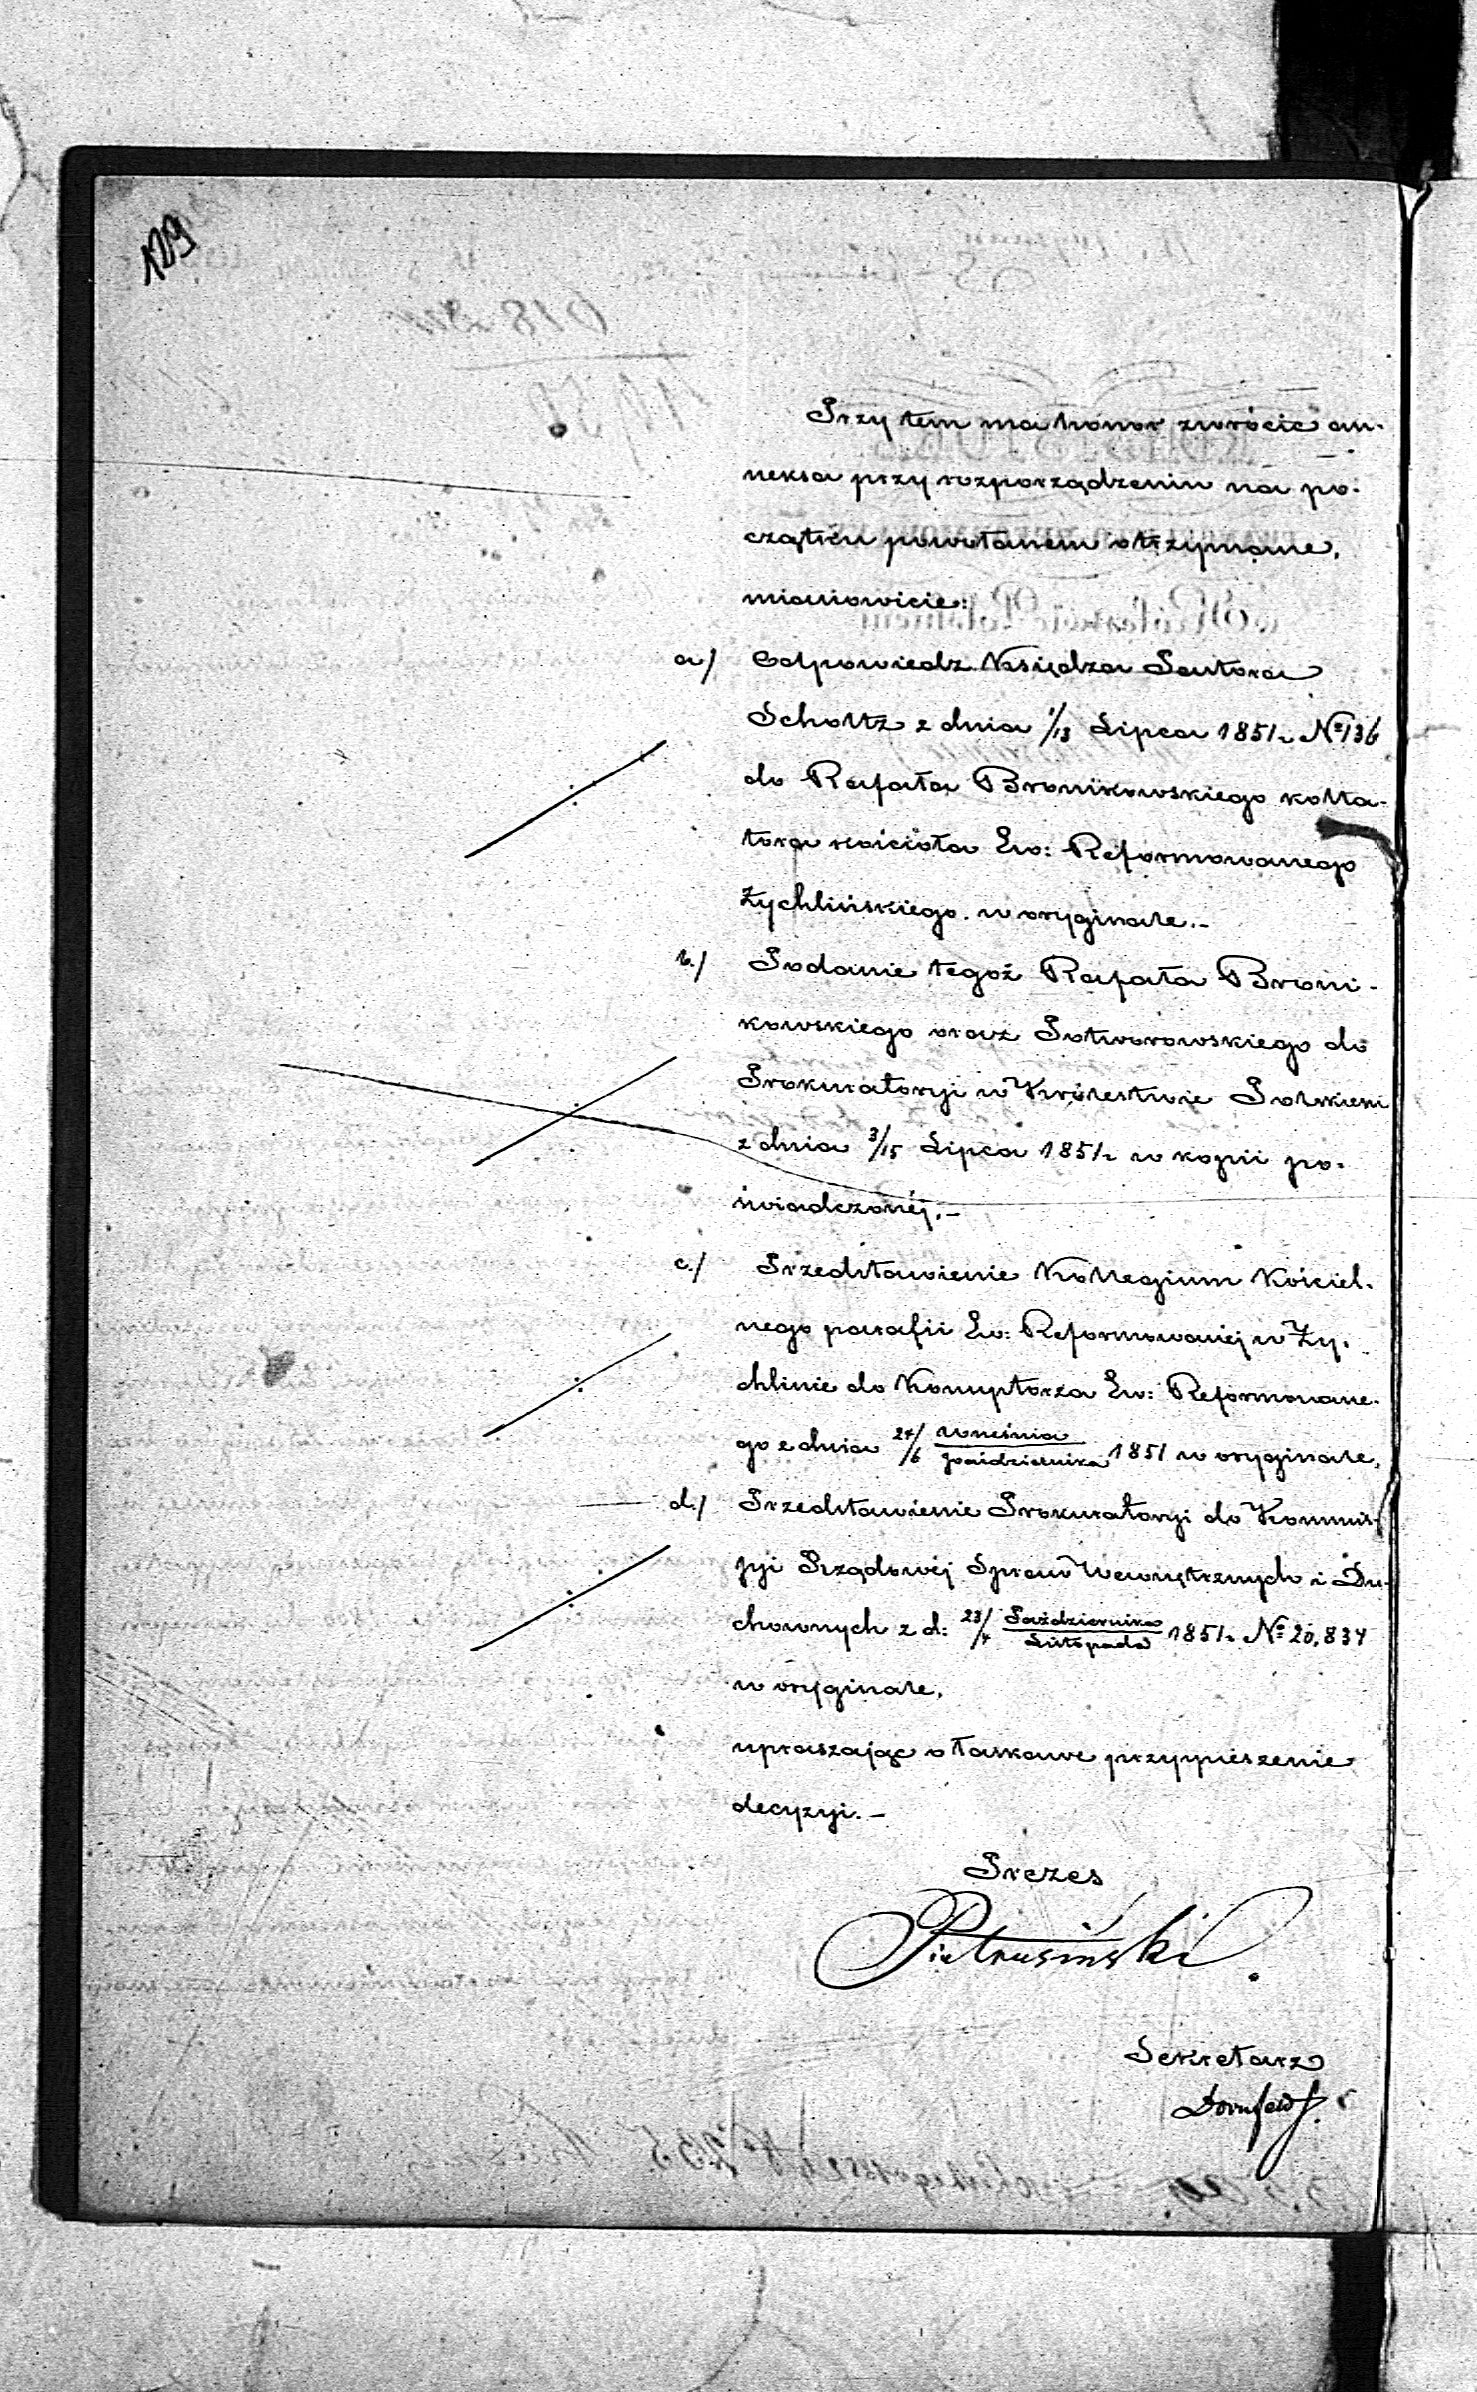 129
Przy tem ma honor zwrócić an-
neksa przy rozporządzeniu na po-
czątku powołanem otrzymane,
mianowicie:
a/ Odpowiedz Księdza Pastora
Scholtz z dnia 1/13 Lipca 1851 r. Nº 136
do Rafała Bronikowskiego kolla-
tora kościoła Ew: Reformowanego
Żychlińskiego. w oryginale.-
b./ Podanie tegoż Rafała Broni-
kowskiego oraz Potworowskiego do
Prokuratoryi w Królestwie Polskiem
z dnia 3/15 Lipca 1851 r. w kopii po-
świadczonéj.-
c./ Przedstawienie Kollegium Kościel-
nego parafii Ew: Reformowanéj w Ży-
chlinie do Konsystorza Ew: Reformowane-
go z dnia 24/6 Września/Października 1851 w oryginale,
d./ Przedstawienie Prokuratoryi do Kommis-
syi Rządowéj Spraw Wewnętrznych i Du-
chownych z d: 23/4 Października/Listopada 1851 r. Nº 20,834
w oryginale,
upraszając o łaskawe przyspieszenie
decyzyi.-
Prezes
Pietrusiński.
Sekretarz
Dornfeld